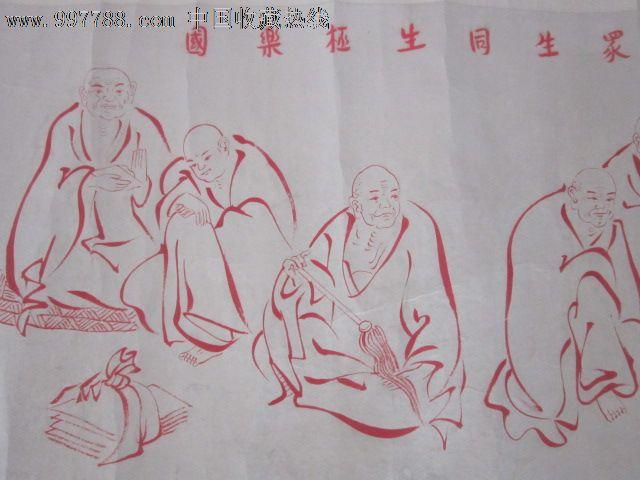 www.997788.com 中国收藏热线
眾生同生極樂國